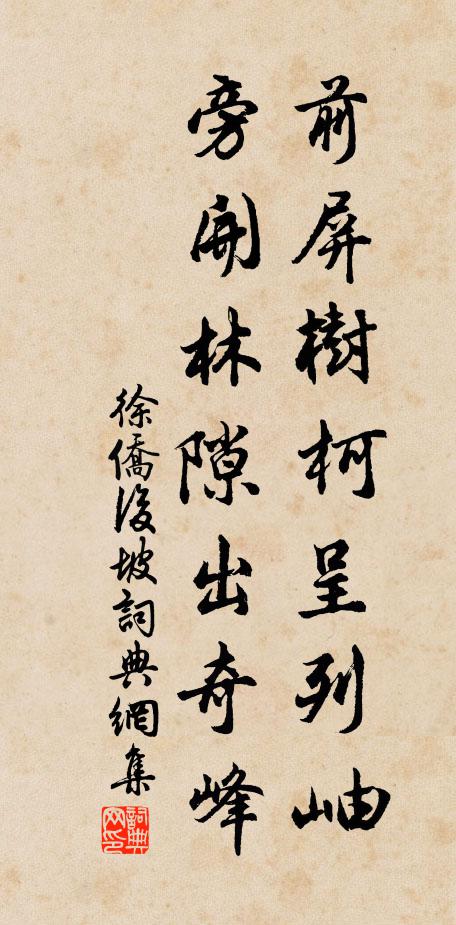 前屏樹柯呈列岫
旁開林隙出奇峰
徐僑後坡詞典網集
詞典网印